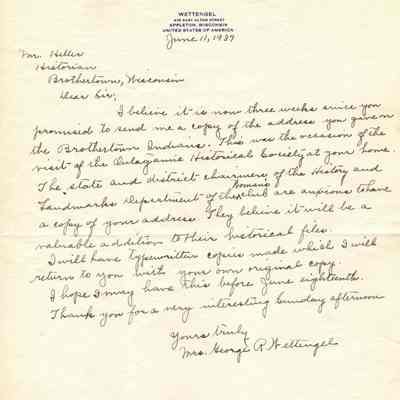 WETTENGEL
APPLETON, WISCONSIN
UNITED STATES OF AMERICA
June 11, 1939
Mr. Heller
Historian
Brothertown, Wisconsin
Dear Sir;
I believe it is now three weeks since you
promised to send me a copy of the address you gave on
the Brothertown Indians. This was the occasion of the
visit of the Outagamie Historical Society at your home.
The state and district chairmen of the History and
Landmarks Department of the Womans Club are anxious to have
a copy of your address. They believe it will be a
valuable addition to their historical files.
I will have typewritten copies made which I will
return to you with your own original copy.
I hope I may have this before June eighteenth.
Thank you for a very interesting Sunday afternoon
Yours truly
Mrs. George R. Wettengel